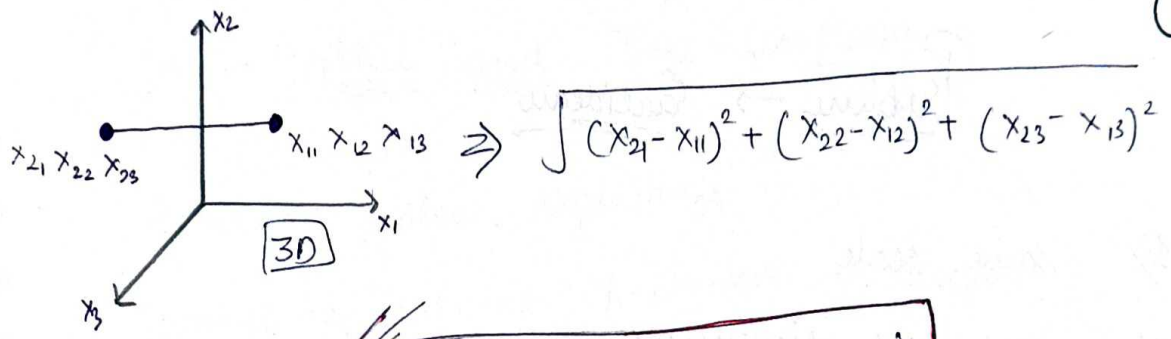 x2
x21 x22 x23
x11 x12 x13 ⇒ √(x21-x11)² + (x22-x12)² + (x23-x13)²
x1
3D
x3